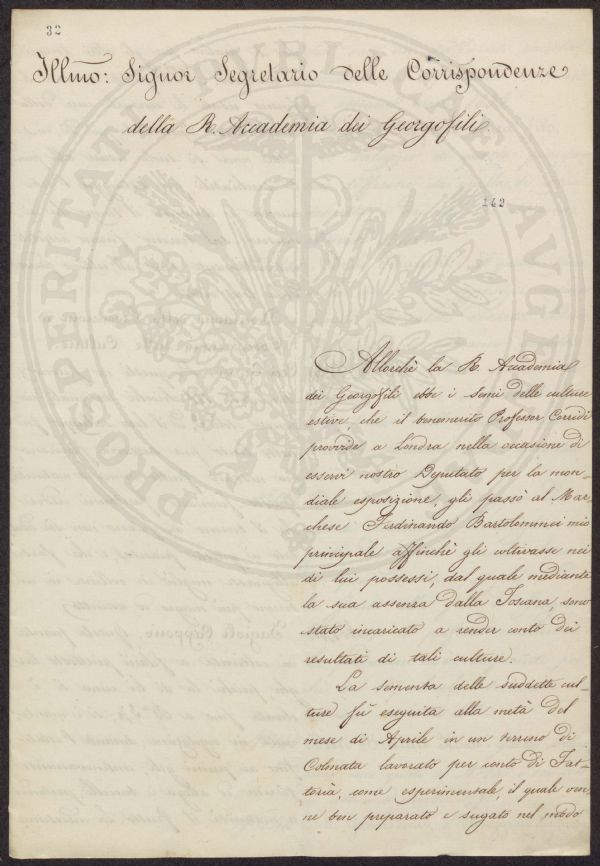 32
Illmo: Signor Segretario delle Corrispondenze
della R. Accademia dei Georgofili.
142
Allorchè la R. Accademia
dei Georgofili ebbe i semi delle culture
estive, che il benemerito Professor Corridi
provvide a Londra nella occasione di
esservi nostro Deputato per la mon-
diale esposizione, gli passò al Mar-
chese Ferdinando Bartolommei mio
principale affinchè gli coltivasse nei
di lui possessi, dal quale mediante
la sua assenza dalla Toscana, sono
stato incaricato a render conto dei
resultati di tali culture.
La sementa delle suddette cul-
ture fù eseguita alla metà del
mese di Aprile in un terreno di
Colmata lavorato per conto di Fat-
toria, come esperimentale, il quale ven-
ne ben preparato e sugato nel modo
PROSPERITATI PUBLICAE AUGE